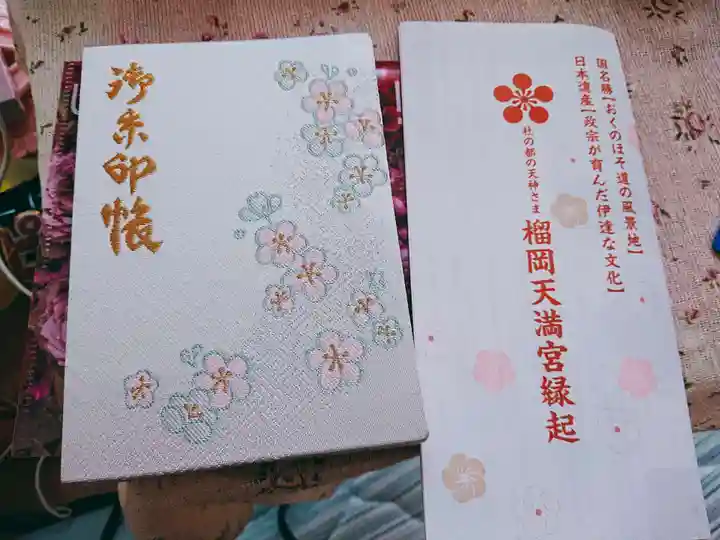 御朱印帳
国名勝【おくのほそ道の風景地】
日本遺産【政宗が育んだ伊達な文化】
杜の都の天神さま
榴岡天満宮縁起